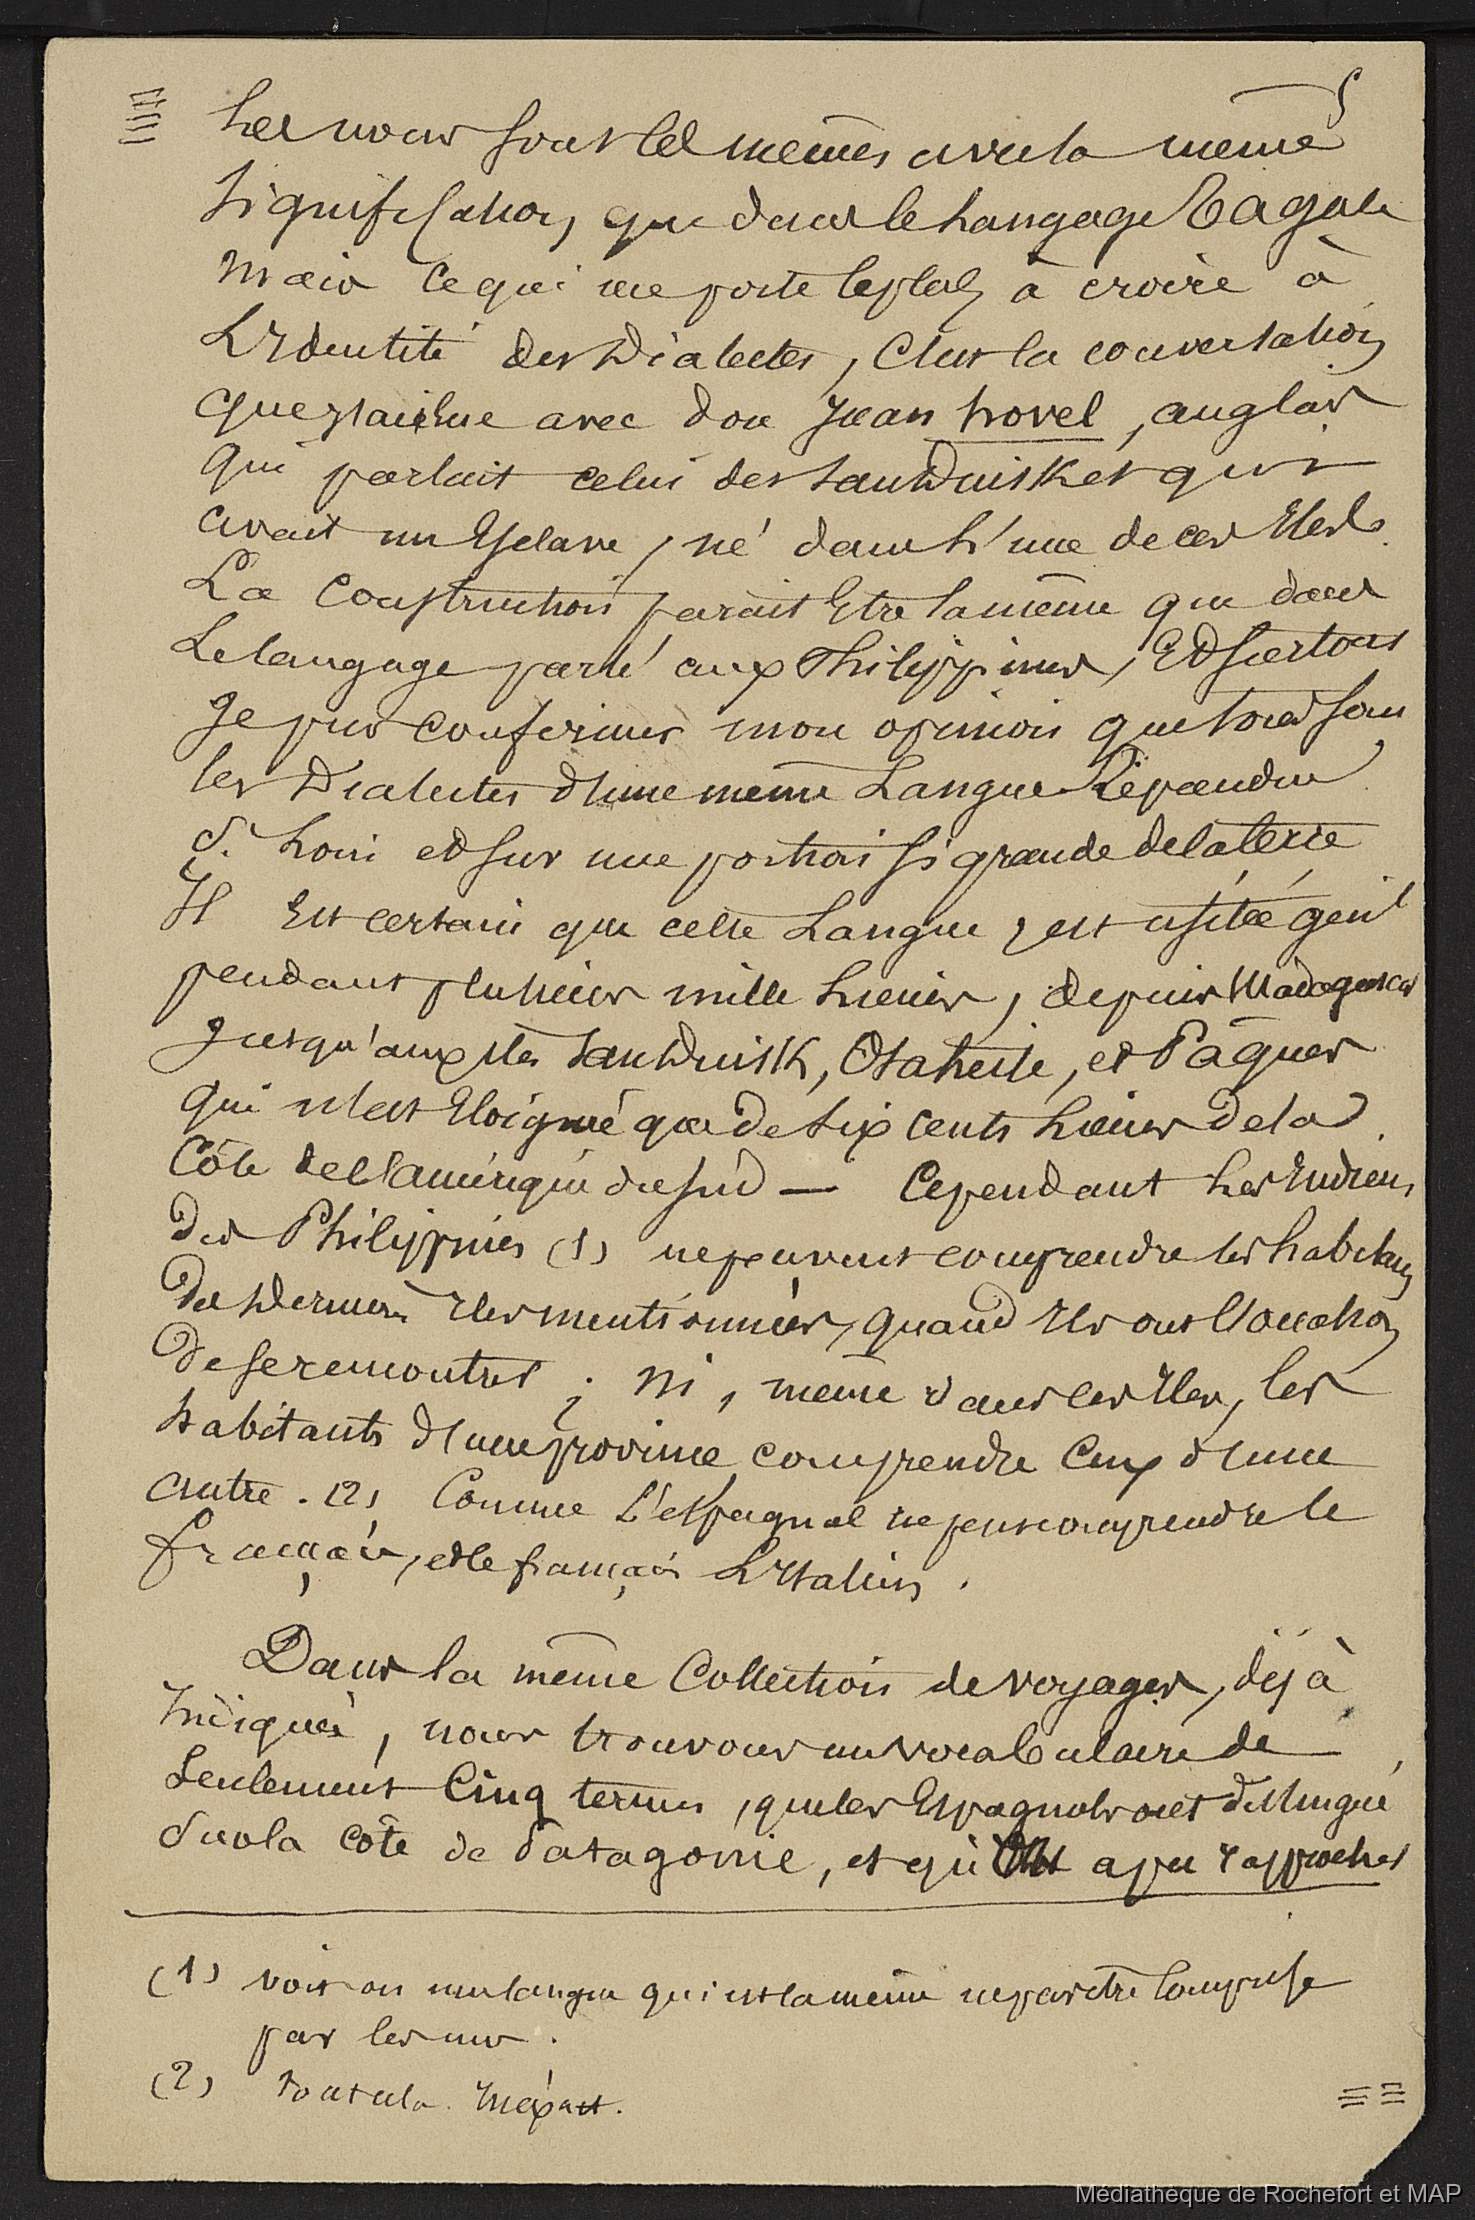 5
Les noms sont les mêmes avec la même
signification, que dans le Langage Tagale
Mais ce qui me porte le plus à croire à
L'Identité des Dialectes, C'est la conversation
que j'ai eue avec don Juan hovel, anglais
qui parlait celui des Sandwisk et qui
avait un Esclave, né dans L'une de ces Iles.
La Construction parait Etre la même que dans
Le langage parlé aux Philippines, Et surtout
Je puis confirmer mon opinion que tous sont
les Dialectes d'une même Langue Répandue
si Loin et sur une portion si grande de la terre
Il Est certain que cette Langue, est usitée gen.l
pendant plusieurs mille Lieues, depuis Madagascar
Jusqu'aux Iles Sandwisk, Otaheite, et Pâques
qui n'est Eloigné que de six cents Lieues de la
Côte de l'amérique du sud — Cependant Les Indiens
des Philippines (1) ne peuvent comprendre les habitans
des dernières Iles mentionnées, quand Ils ont l'occasion
de se rencontrer ; Ni, même dans ces Iles, les
habitants d'une province, comprendre Ceux d'une
autre. (2) Comme L'espagnol ne peut comprendre le
français, et le français L'Italien.
Dans la même Collection de voyages, déjà
Indiquée, nous trouvons un vocabulaire de
Seulement Cinq termes, que les Espagnols ont distingué
sur la côte de Patagonie, et qu'on a pu rapprocher
(1) voit-on une langue qui est la même ne pas être comprise
par les uns.
(2) tout cela. Inexact.
Médiathèque de Rochefort et MAP